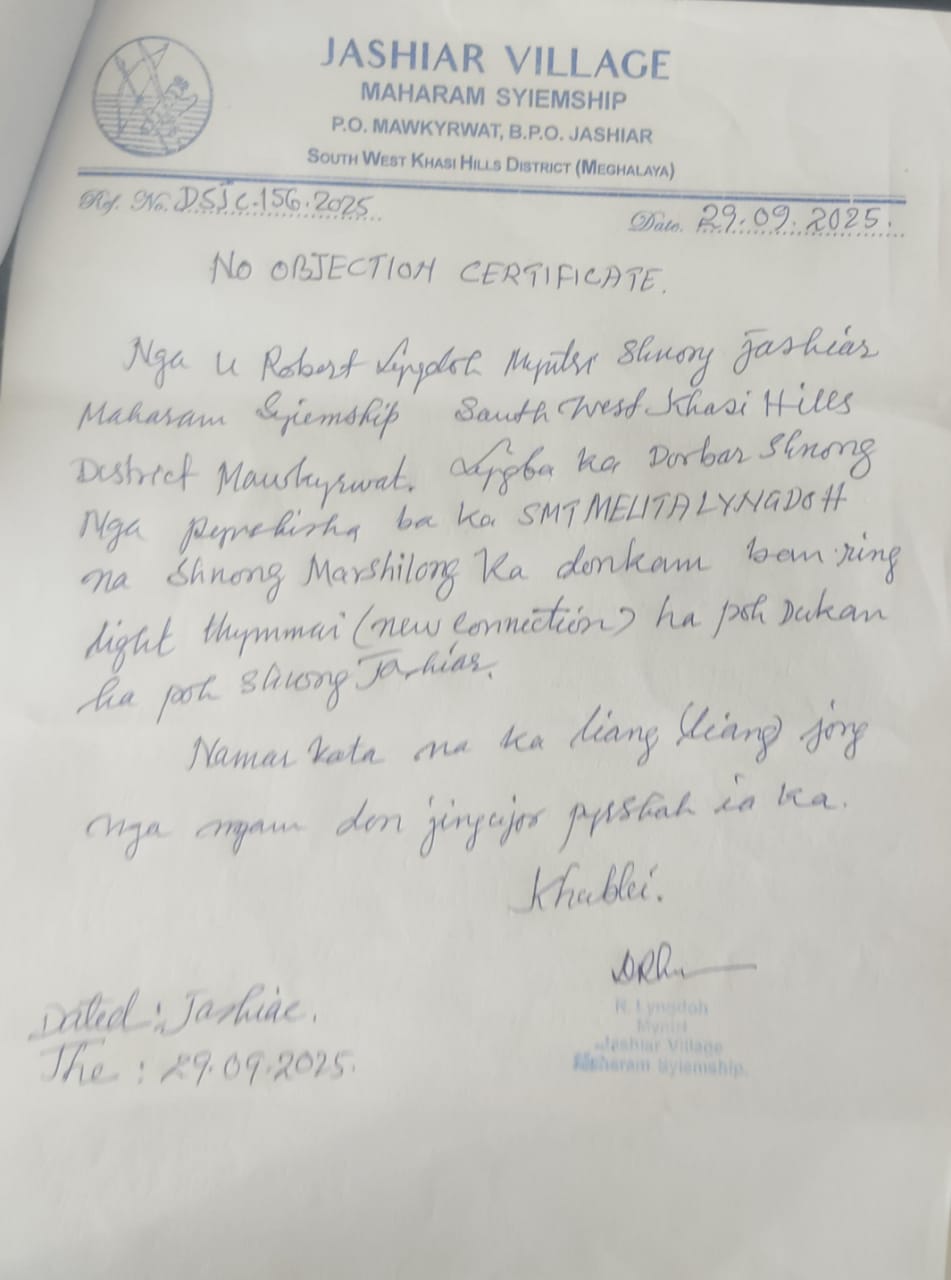 JASHIAR VILLAGE
MAHARAM SYIEMSHIP
P.O. MAWKYRWAT, B.P.O. JASHIAR
SOUTH WEST KHASI HILLS DISTRICT (MEGHALAYA)
Ref. No. DSJC.156.2025
Date. 29.09.2025.
NO OBJECTION CERTIFICATE.
Nga u Robert Lyngdoh Myntri Shnong Jashiar
Maharam Syiemship South West Khasi Hills
District Mawkyrwat. ka Dorbar Shnong
Nga ba ka SMT MELITA LYNGDOH
na Shnong Marshilong Ka donkam ban ring
light thymmai (new connection) ha poh Dukan
ha poh Shnong Jashiar.
Namar kata na ka liang (liang) jong
nga ngam don jingujor pyrshah ia ka.
Khublei.
R. Lyngdoh
Myntri
Jashiar Village
Maharam Syiemship.
Dated : Jashiar.
The : 29.09.2025.